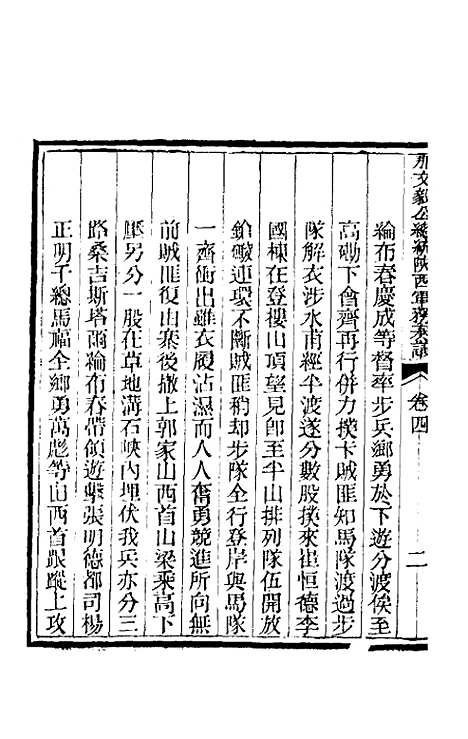 那文毅公總統陝西軍務奏議 卷四 二
綸布春慶成等督率步兵鄉勇於下遊分渡俟至
高磡下會齊再行併力撲卡賊匪知馬隊渡過步
隊解衣涉水甫經半渡遂分數股撲來崔恒德李
國棟在登樓山頂望見卽至半山排列隊伍開放
鎗礮連環不斷賊匪稍却步隊全行登岸與馬隊
一齊衝出雖衣履沾濕而人人奮勇競進所向無
前賊匪復由寨後撤上郭家山西首山梁乘高下
壓另分一股在草地溝石峽內埋伏我兵亦分三
路桑吉斯塔爾綸布春帶領遊擊張明德都司楊
正明千總馬福全鄉勇萬彪等由西首跟蹤上攻